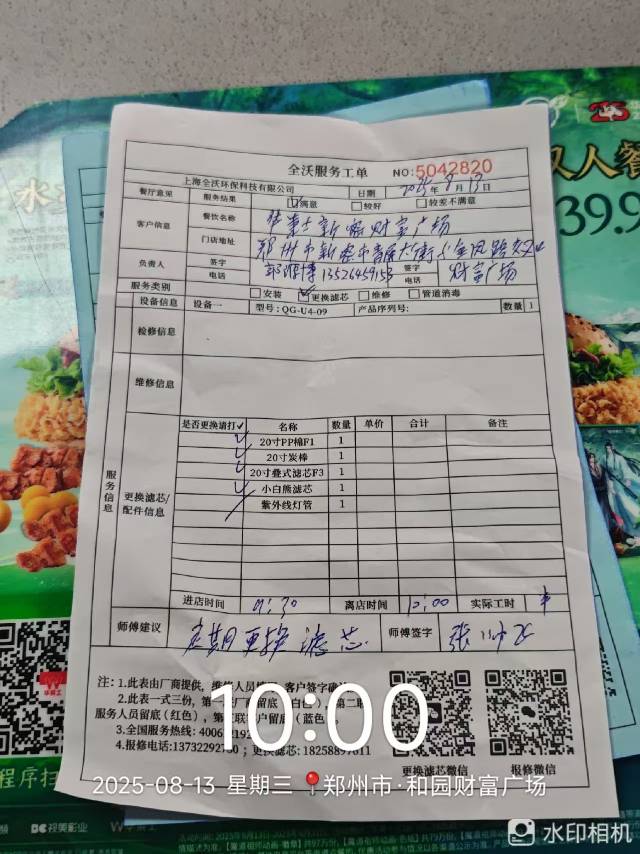 全沃服务工单 NO:5042820
上海全沃环保科技有限公司 日期 2025年8月13日
餐厅意见 服务结果 满意 较好 较差不满意
客户信息 餐饮名称 华莱士新密财富广场
门店地址 郑州市新密市青屏大街
财富广场
负责人 签字 签字
电话 13526459153 电话
服务类别 安装 更换滤芯 维修 管道消毒
设备信息 设备一 型号:QG-U4-09 产品序列号: 数量 1
检修信息
维修信息
服务信息
更换滤芯/配件信息
是否更换请打✓ 名称 数量 单价 合计 备注
✓ 20寸PP棉F1 1
✓ 20寸炭棒 1
✓ 20寸叠式滤芯F3 1
✓ 小白熊滤芯 1
紫外线灯管 1
进店时间 9:30 离店时间 10:00 实际工时
师傅建议 定期更换滤芯 师傅签字 张
注:1.此表由厂商提供,维修人员填写,客户签字确认
2.此表一式三份,第一
服务人员留底(红色),第 联客户留底(蓝色
3.全国服务热线:4006 192
4.报修电话:13732292780;更换滤芯:18258897611
更换滤芯微信 报修微信
10:00
2025-08-13 星期三 郑州市·和园财富广场
水印相机
双人餐
39.9
25
程序扫
视美影业